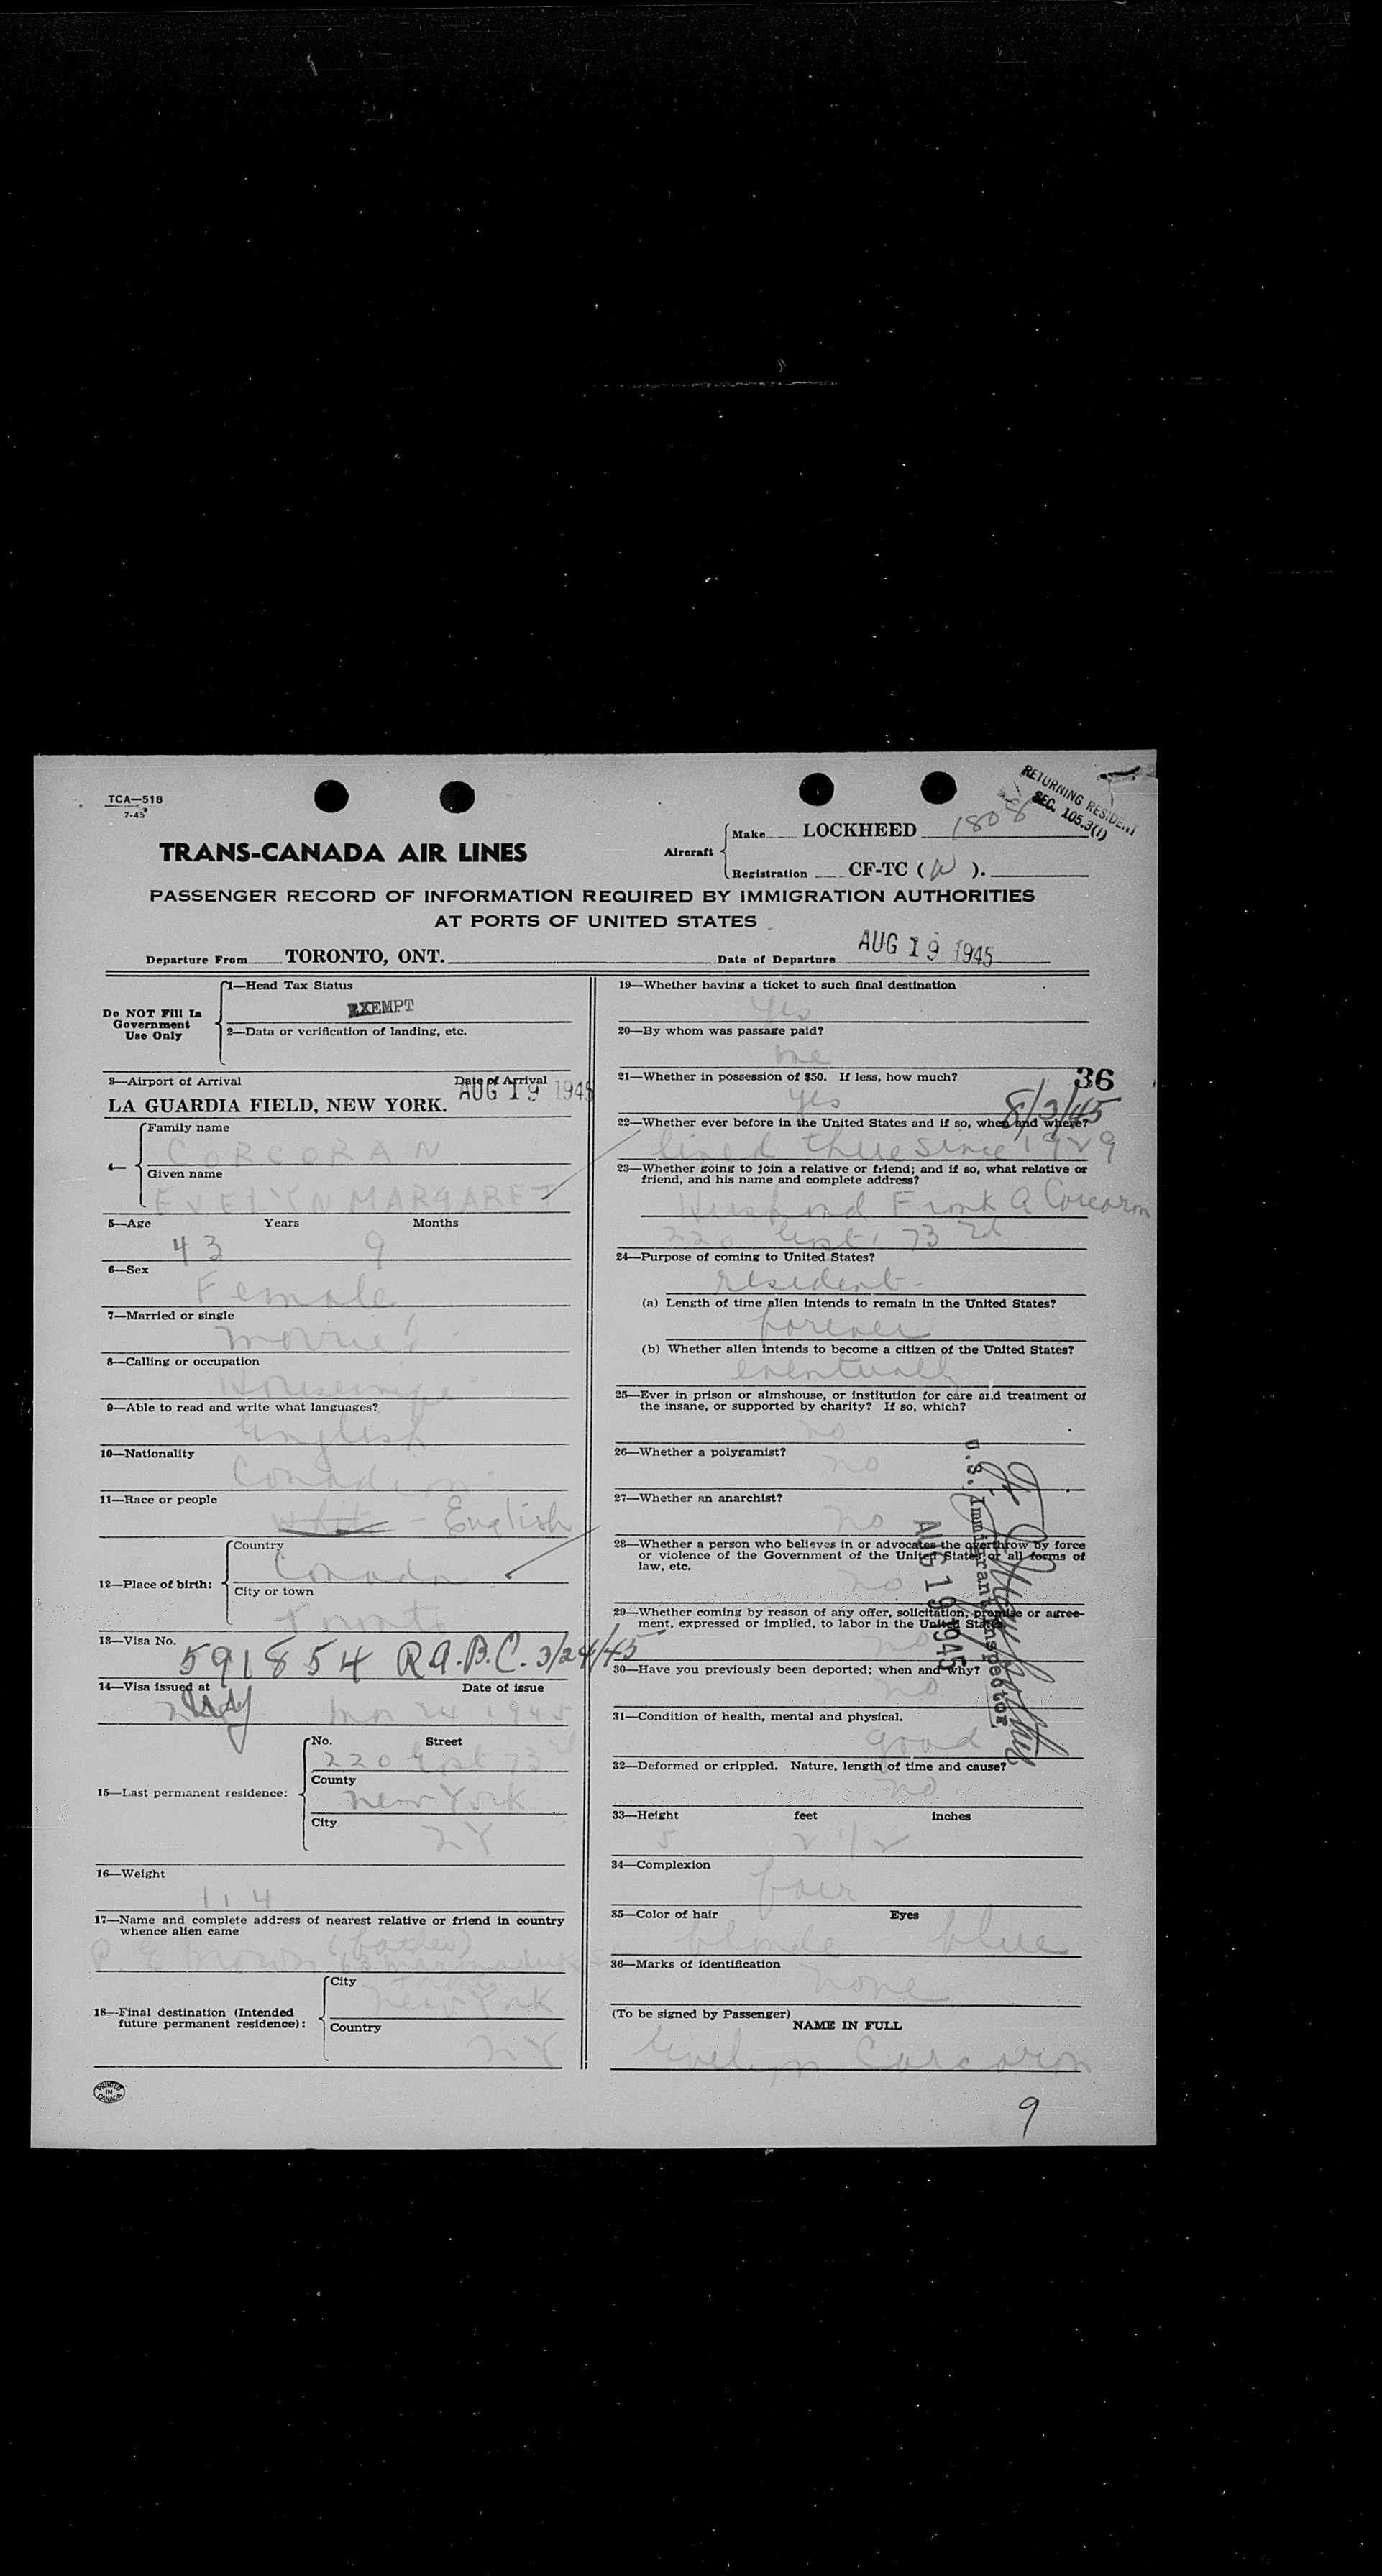 TCA—518
7-45
RETURNING RESIDENT
SEC. 105.3(1)
TRANS-CANADA AIR LINES
Aircraft
Make LOCKHEED 1808
Registration CF-TC ( W ).
PASSENGER RECORD OF INFORMATION REQUIRED BY IMMIGRATION AUTHORITIES
AT PORTS OF UNITED STATES
Departure From TORONTO, ONT. Date of Departure AUG 19 1945
Do NOT Fill In
Government
Use Only
1—Head Tax Status
EXEMPT
2—Data or verification of landing, etc.
3—Airport of Arrival Date of Arrival
LA GUARDIA FIELD, NEW YORK. AUG 19 1945
4—
Family name
CORCORAN
Given name
EVELYN MARGARET
5—Age Years Months
43 9
6—Sex
Female
7—Married or single
married
8—Calling or occupation
Housewife
9—Able to read and write what languages?
English
10—Nationality
Canadian
11—Race or people
White - English
12—Place of birth:
Country
Canada
City or town
Toronto
13—Visa No.
591854 R.A.B.C. 3/24/45
14—Visa issued at Date of issue
Mar 24 1945
15—Last permanent residence:
No. Street
220 East 73rd
County
New York
City
NY
16—Weight
114
17—Name and complete address of nearest relative or friend in country
whence alien came
(father)
18—Final destination (Intended
future permanent residence):
City
New York
Country
NY
PRINTED
IN
CANADA
19—Whether having a ticket to such final destination
Yes
20—By whom was passage paid?
me
21—Whether in possession of $50. If less, how much?
yes
36
8/3/45
22—Whether ever before in the United States and if so, when and where?
lived there since 1929
23—Whether going to join a relative or friend; and if so, what relative or
friend, and his name and complete address?
Husband Frank A Corcoran
220 East 73rd
24—Purpose of coming to United States?
resident
(a) Length of time alien intends to remain in the United States?
forever
(b) Whether alien intends to become a citizen of the United States?
eventually
25—Ever in prison or almshouse, or institution for care and treatment of
the insane, or supported by charity? If so, which?
no
26—Whether a polygamist?
no
27—Whether an anarchist?
no
28—Whether a person who believes in or advocates the overthrow by force
or violence of the Government of the United States or all forms of
law, etc.
no
29—Whether coming by reason of any offer, solicitation, promise or agree-
ment, expressed or implied, to labor in the United States.
no
30—Have you previously been deported; when and why?
no
AUG 19 1945
U.S. Immigrant Inspector
31—Condition of health, mental and physical.
good
32—Deformed or crippled. Nature, length of time and cause?
no
33—Height feet inches
5 2 1/2
34—Complexion
fair
35—Color of hair Eyes
blonde blue
36—Marks of identification
none
(To be signed by Passenger)
NAME IN FULL
Evelyn Corcoran
9